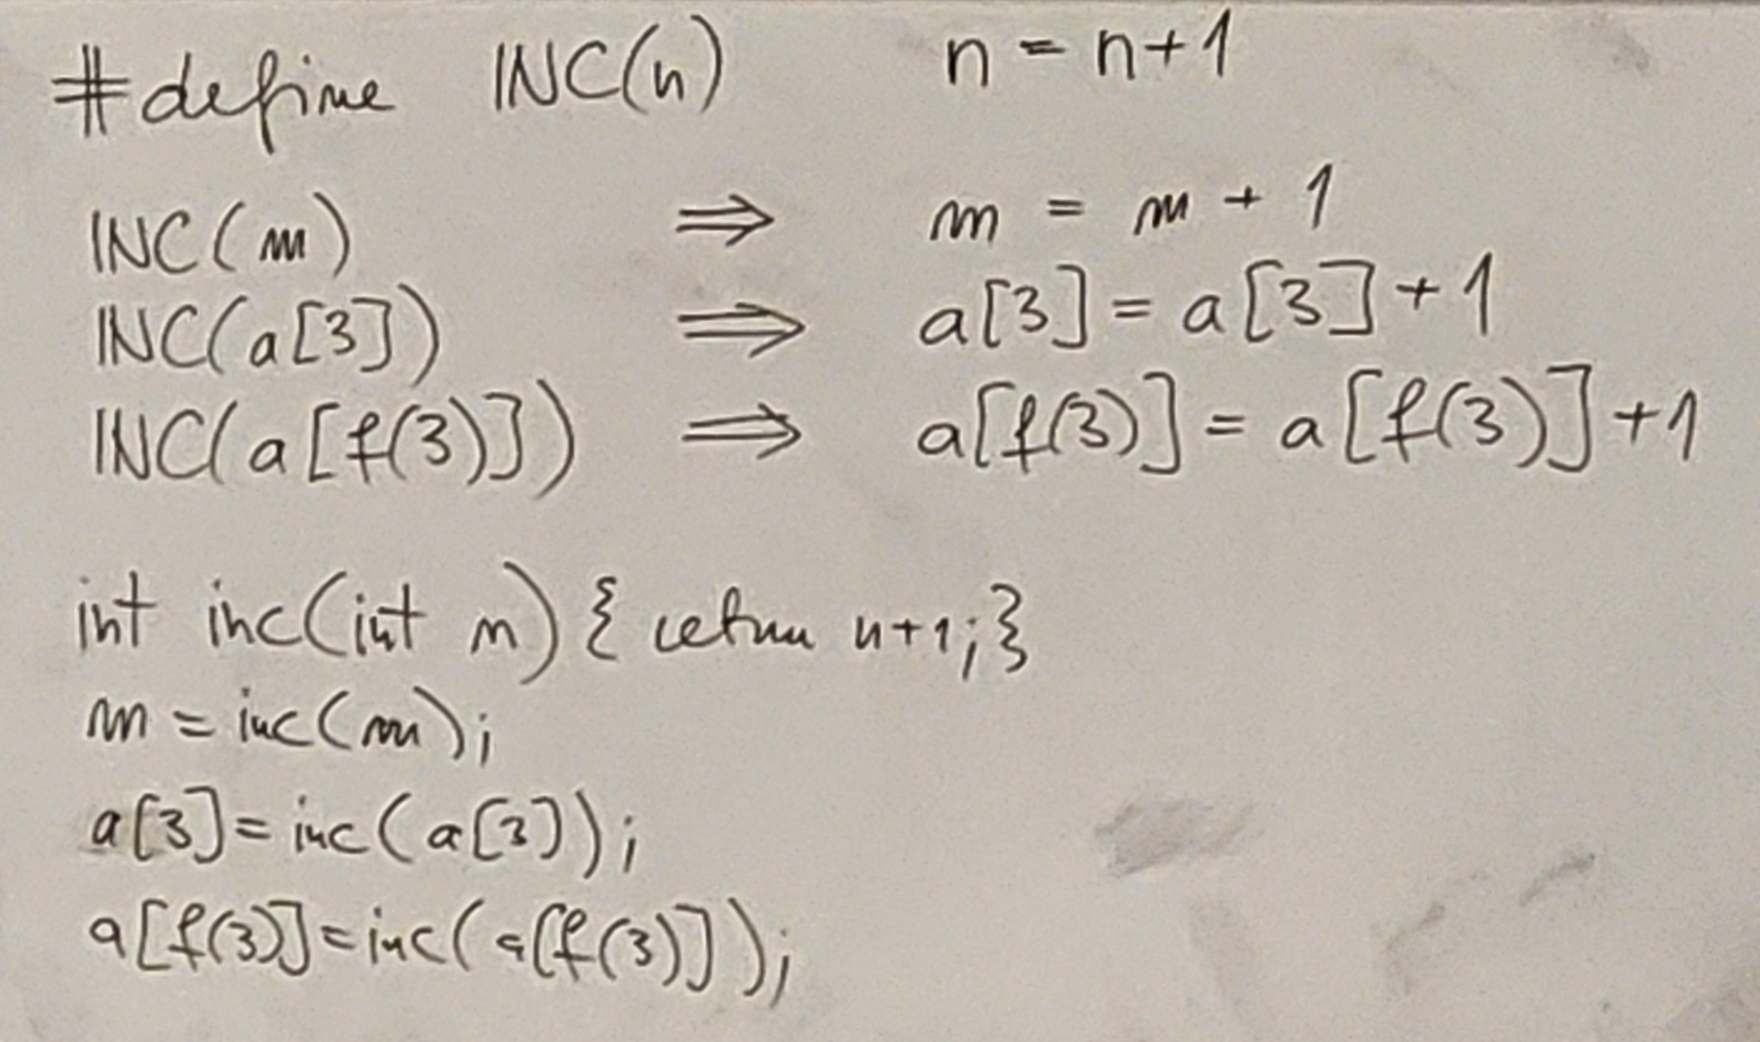 #define INC(n) n = n+1
INC(m) ⇒ m = m + 1
INC(a[3]) ⇒ a[3] = a[3] + 1
INC(a[f(3)]) ⇒ a[f(3)] = a[f(3)] + 1
int inc(int n) { return n+1; }
m = inc(m);
a[3] = inc(a[3]);
a[f(3)] = inc(a[f(3)]);